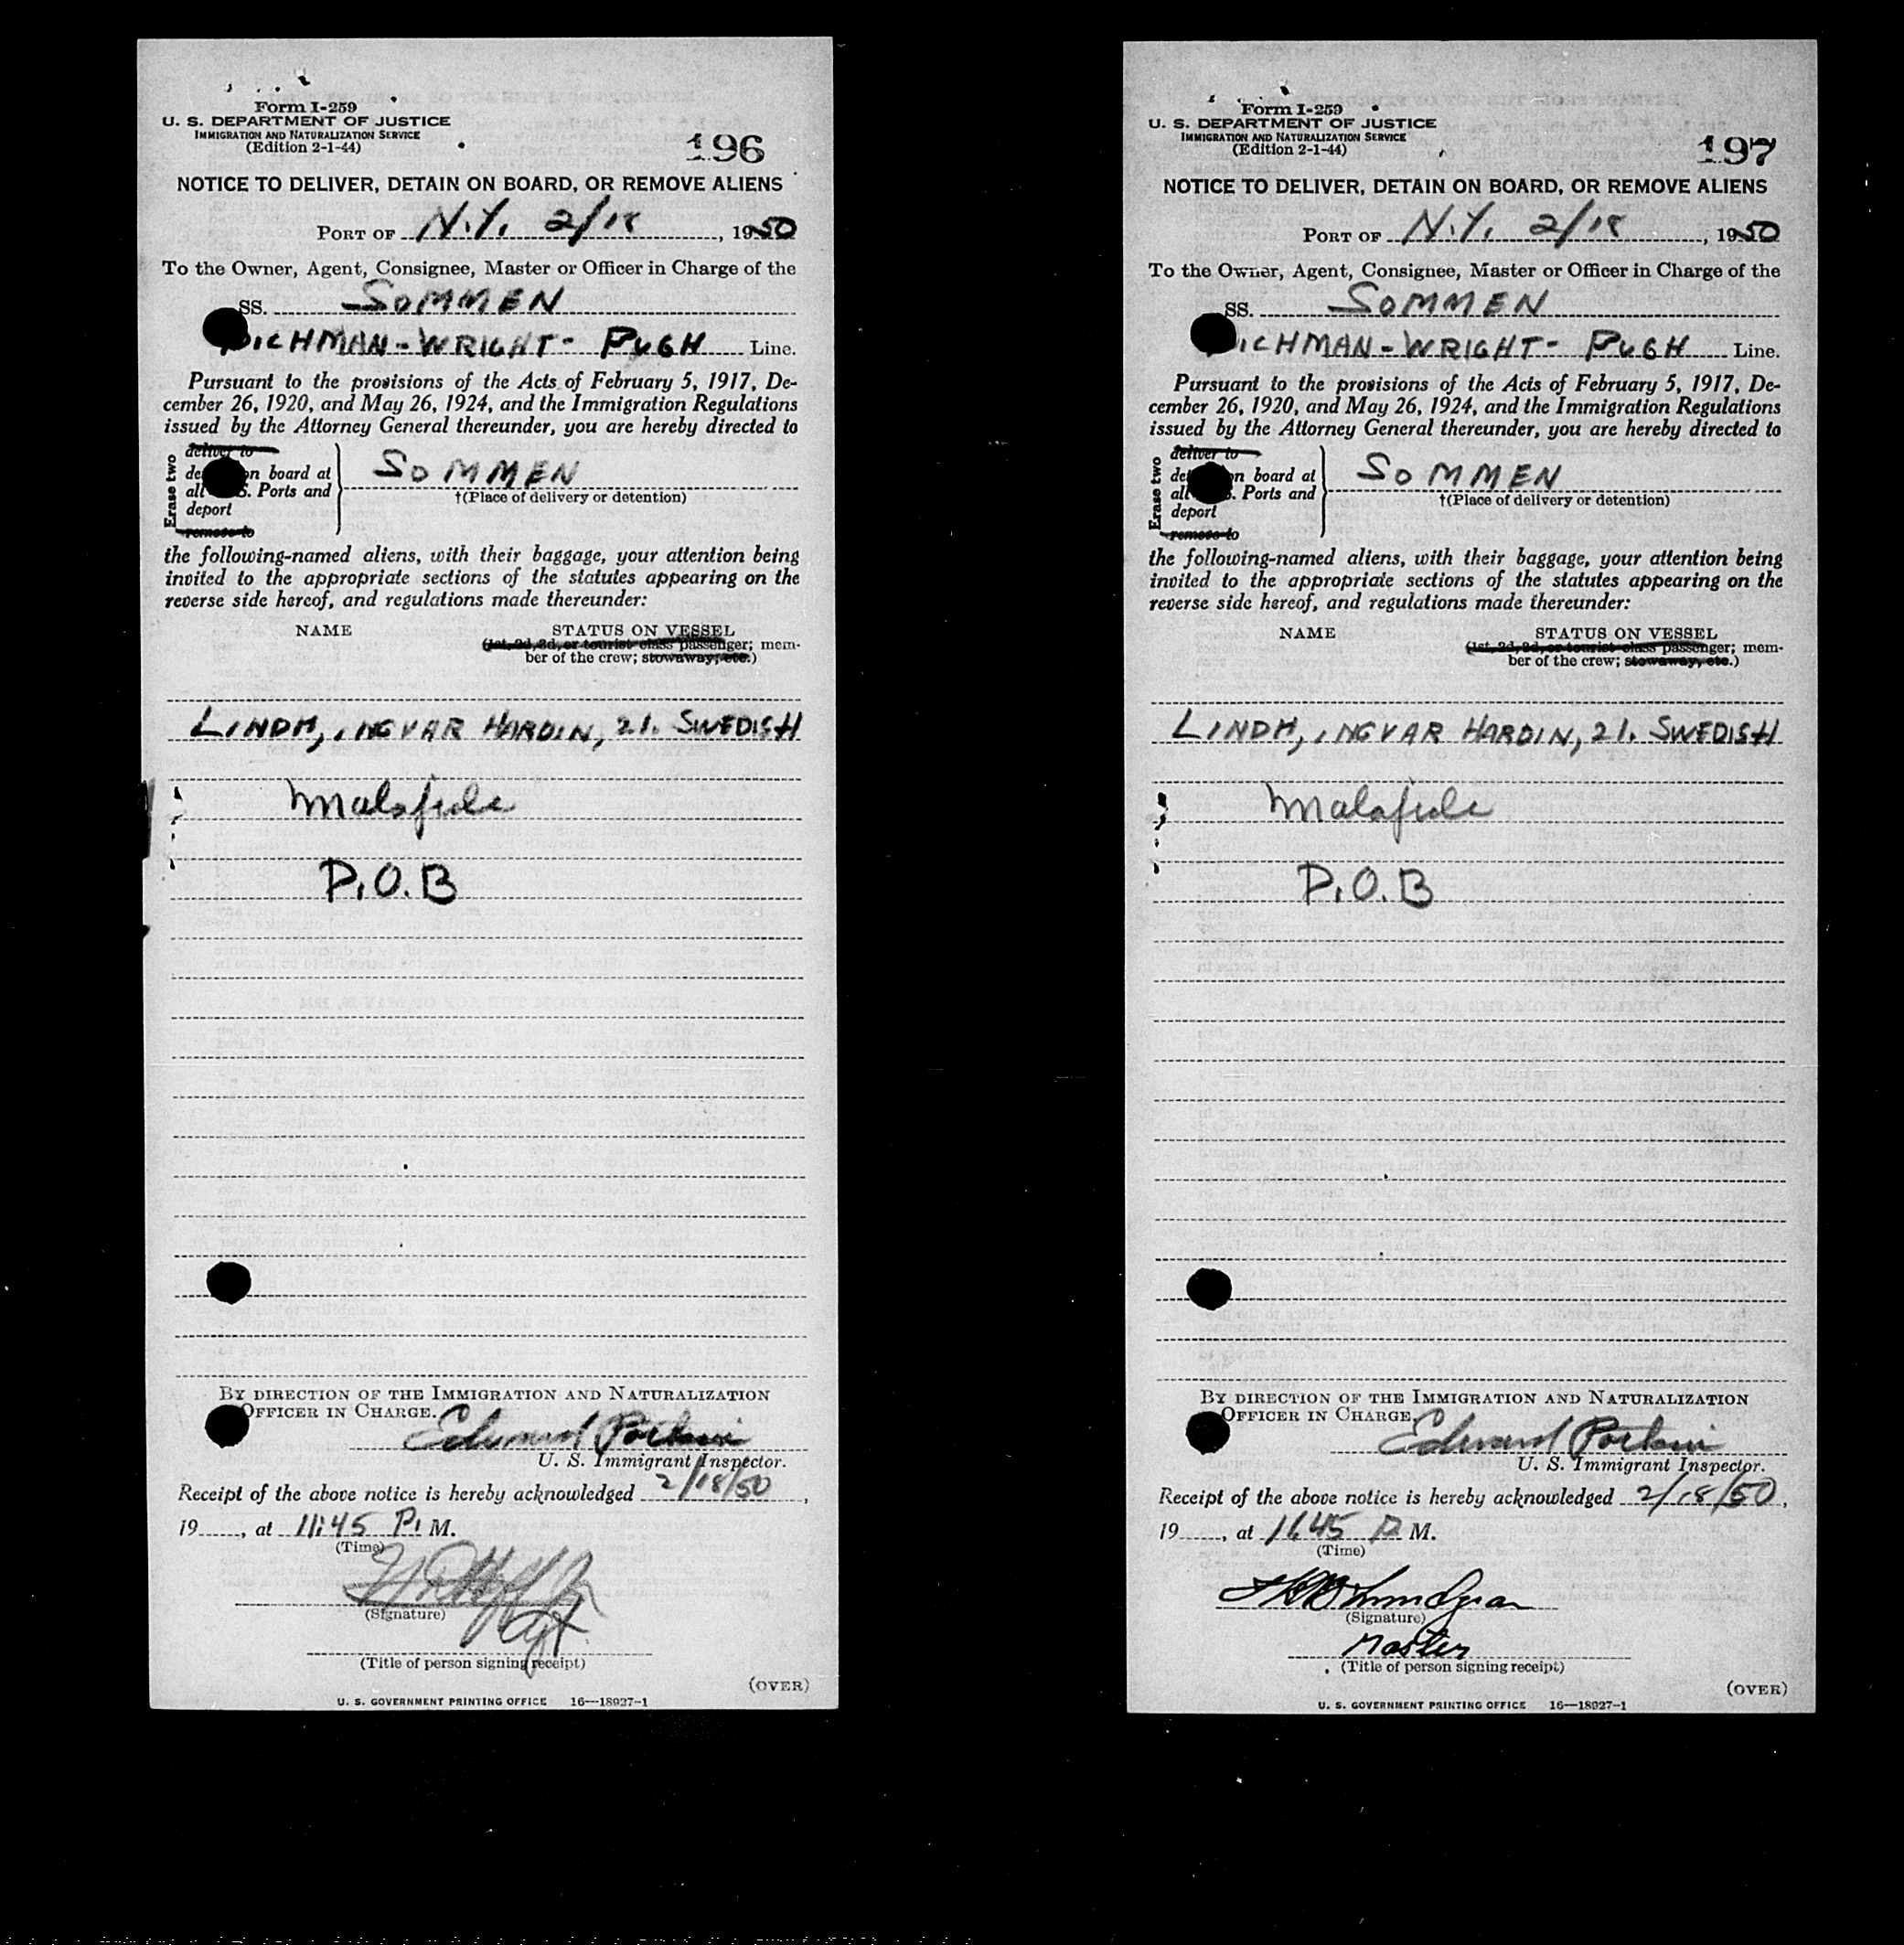 Form I-259
U. S. DEPARTMENT OF JUSTICE
IMMIGRATION AND NATURALIZATION SERVICE
(Edition 2-1-44)
196
NOTICE TO DELIVER, DETAIN ON BOARD, OR REMOVE ALIENS
PORT OF N.Y. 2/18, 1950
To the Owner, Agent, Consignee, Master or Officer in Charge of the
SS. SOMMEN
ICHMAN-WRIGHT- PUGH Line.
Pursuant to the provisions of the Acts of February 5, 1917, De-
cember 26, 1920, and May 26, 1924, and the Immigration Regulations
issued by the Attorney General thereunder, you are hereby directed to
Erase two
deliver to
de n board at
all S. Ports and
deport
remove to
SOMMEN
†(Place of delivery or detention)
the following-named aliens, with their baggage, your attention being
invited to the appropriate sections of the statutes appearing on the
reverse side hereof, and regulations made thereunder:
NAME STATUS ON VESSEL
(1st, 2d, 3d, or tourist class passenger; mem-
ber of the crew; stowaway, etc.)
LINDH, INGVAR HARDIN, 21. SWEDISH
Malafide
P.O.B
BY DIRECTION OF THE IMMIGRATION AND NATURALIZATION
OFFICER IN CHARGE.
Edward
U. S. Immigrant Inspector.
Receipt of the above notice is hereby acknowledged 2/18/50,
19____, at 11:45 P. M.
(Time)
(Signature)
Agt.
(Title of person signing receipt)
(OVER)
U. S. GOVERNMENT PRINTING OFFICE 16—18927-1
Form I-259
U. S. DEPARTMENT OF JUSTICE
IMMIGRATION AND NATURALIZATION SERVICE
(Edition 2-1-44)
197
NOTICE TO DELIVER, DETAIN ON BOARD, OR REMOVE ALIENS
PORT OF N.Y. 2/18, 1950
To the Owner, Agent, Consignee, Master or Officer in Charge of the
SS. SOMMEN
ICHMAN-WRIGHT- PUGH Line.
Pursuant to the provisions of the Acts of February 5, 1917, De-
cember 26, 1920, and May 26, 1924, and the Immigration Regulations
issued by the Attorney General thereunder, you are hereby directed to
Erase two
deliver to
de n board at
all S. Ports and
deport
remove to
SOMMEN
†(Place of delivery or detention)
the following-named aliens, with their baggage, your attention being
invited to the appropriate sections of the statutes appearing on the
reverse side hereof, and regulations made thereunder:
NAME STATUS ON VESSEL
(1st, 2d, 3d, or tourist class passenger; mem-
ber of the crew; stowaway, etc.)
LINDH, INGVAR HARDIN, 21. SWEDISH
Malafide
P.O.B
BY DIRECTION OF THE IMMIGRATION AND NATURALIZATION
OFFICER IN CHARGE.
Edward
U. S. Immigrant Inspector.
Receipt of the above notice is hereby acknowledged 2/18/50,
19____, at 11.45 P M.
(Time)
(Signature)
Master
(Title of person signing receipt)
(OVER)
U. S. GOVERNMENT PRINTING OFFICE 16—18927-1